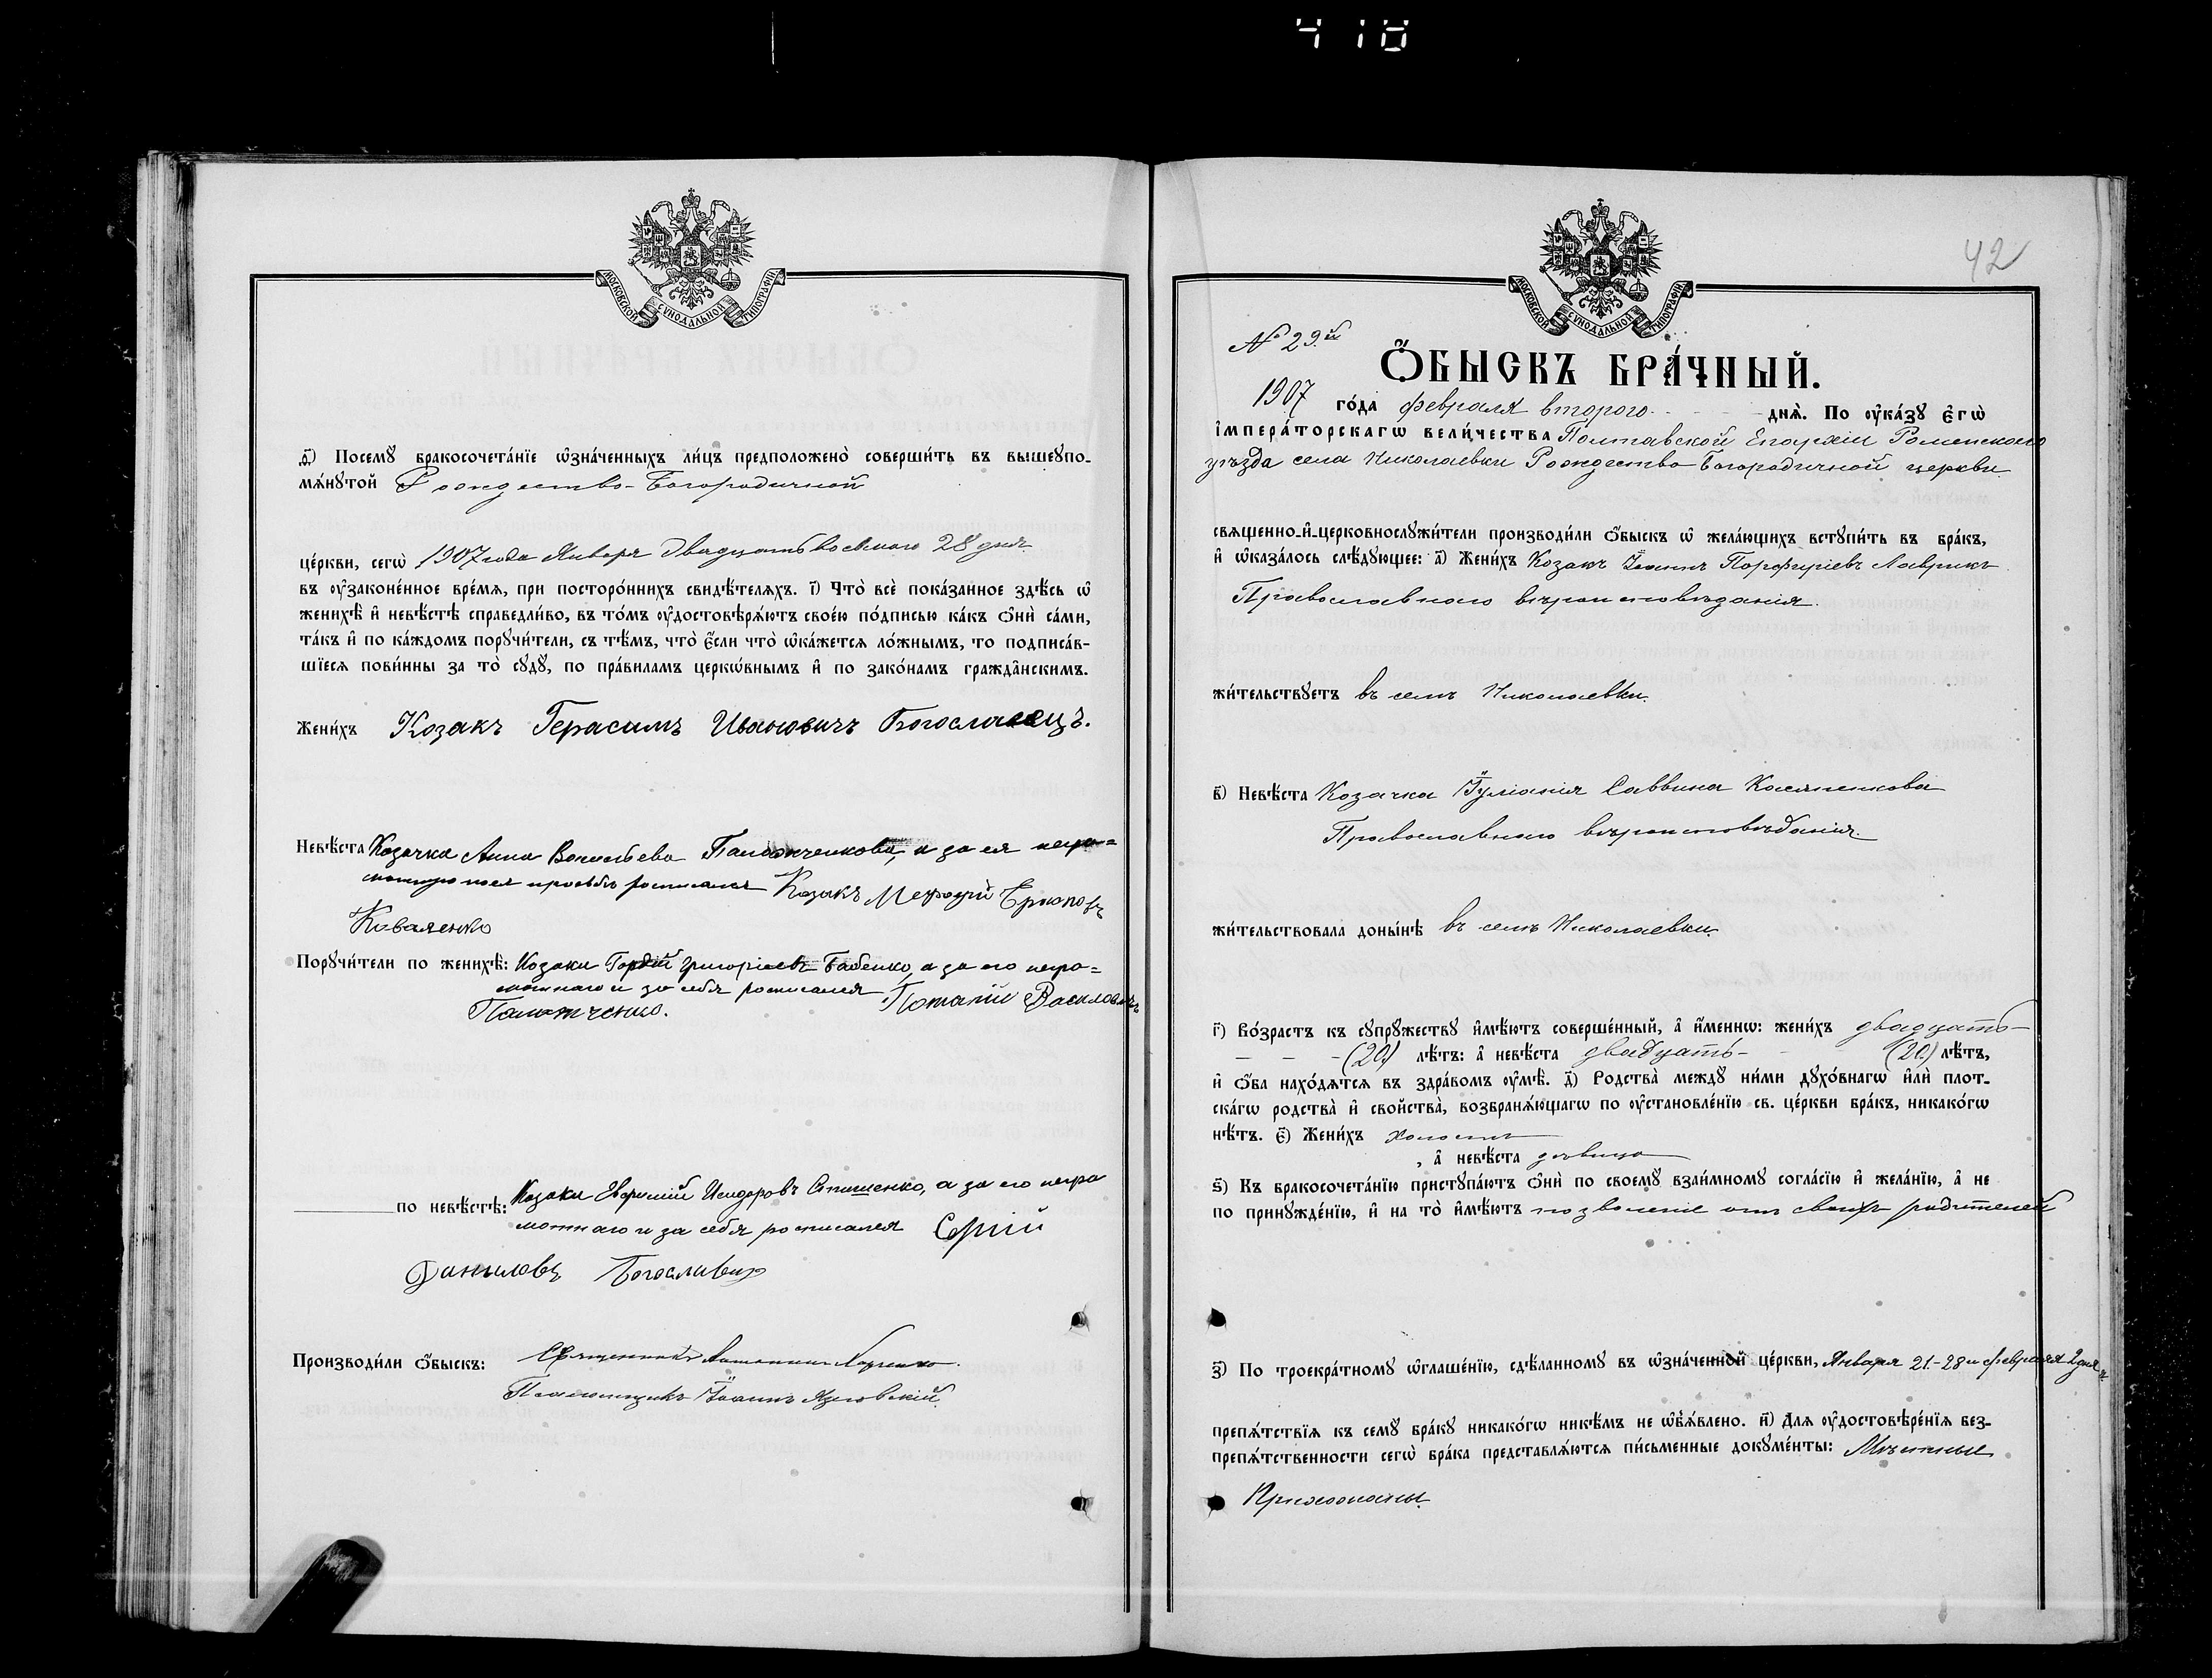 418
МОСКОВСКОЙ СѴНОДАЛЬНОЙ ТИПОГРАФІИ
ѳ҃) Посемꙋ бракосочета́нїе ѡ҆зна́ченныхъ ли́цъ предположено̀ соверши́ть въ вышеупо-
мѧ́нꙋтой Рождество-Богородичной
це́ркви, сегѡ̀ 1907 года Января двадцать восьмого 28 дня
въ оу҆законе́нное вре́мѧ, при посторо́ннихъ свидѣ́телѧхъ. і҃) Что̀ всѐ пока́занное здѣ́сь ѡ҆
женихѣ̀ и҆ невѣ́стѣ справедли́во, въ то́мъ оу҆достовѣрѧ́ютъ свое́ю по́дписью ка́къ ѻ҆нѝ са́ми,
та́къ и҆ по ка́ждомъ порꙋчи́тели, съ тѣ́мъ, что̀ є҆́сли что̀ ѡ҆ка́жетсѧ ло́жнымъ, то подписа́в-
шїесѧ пови́нны за то̀ сꙋдꙋ̀, по пра́виламъ церкѡ́внымъ и҆ по зако́намъ гражда̑нскимъ.
Жени́хъ Козакъ Герасимъ Ивановичъ Богославецъ.
Невѣ́ста Козачка Анна Васильева Паламченкова, а за ея негра=
мотную по ея просьбѣ росписался Козакъ Мефодій
Коваленко
Порꙋчи́тели по женихѣ̀: Козаки Гордій Григоріевъ Бабенко, а за его негра=
мотнаго и за себя росписался Потапій Василовичъ
по невѣ́стѣ: Козаки Евфимій Исидоровъ Опишенко, а за его негра
мотнаго и за себя росписался Сергій
Даниловъ
Производи́ли ѻ҆́быскъ: Священникъ
Псаломщикъ Іоаннъ
42
МОСКОВСКОЙ СѴНОДАЛЬНОЙ ТИПОГРАФІИ
№ 29.й
Ѻ҆БЫСКЪ БРА́ЧНЫЙ.
1907 го́да февраля второго днѧ̀. По оу҆ка́зꙋ є҆гѡ̀
і҆мпера́торскагѡ вели́чества Полтавской Епархіи Роменскаго
уѣзда села Николаевки Рождество-Богородичной церкви
священно-и҆-церковнослꙋжи́тели производи́ли ѻ҆́быскъ ѡ҆ жела́ющихъ встꙋпи́ть въ бра́къ,
и҆ ѡ҆каза́лось слѣ́дꙋющее: а҃) Жени́хъ Козакъ Іоаннъ Порфиріевъ Лаврикъ
Православнаго вѣроисповѣданія.
жи́тельствꙋетъ въ селѣ Николаевки.
в҃) Невѣ́ста Козачка Іуліанія Саввина Касяненкова
Православнаго вѣроисповѣданія.
жи́тельствовала доны́нѣ въ селѣ Николаевки.
г҃) Во́зрастъ къ сꙋпрꙋ́жествꙋ и҆мѣ́ютъ соверше́нный, а҆ и҆́меннѡ: жени́хъ двадцать
(20) лѣ́тъ: а҆ невѣ́ста двадцать (20) лѣ́тъ,
и҆ ѻ҆́ба нахо́дѧтсѧ въ здра́вомъ оу҆мѣ̀. д҃) Родства̀ междꙋ̀ ни́ми дꙋхо́внагѡ и҆лѝ плот-
ска́гѡ родства̀ и҆ свойства̀, возбранѧ́ющагѡ по оу҆становле́нїю св. це́ркви бра́къ, никако́гѡ
нѣ́тъ. є҃) Жени́хъ холостъ
, а҆ невѣ́ста дѣвица
ѕ҃) Къ бракосочета́нїю пристꙋпа́ютъ ѻ҆нѝ по своемꙋ̀ взаи́мномꙋ согла́сїю и҆ жела́нїю, а҆ не
по принꙋжде́нїю, и҆ на то̀ и҆мѣ́ютъ позволеніе отъ своихъ родителей
з҃) По троекра́тномꙋ ѡ҆глаше́нїю, сдѣ́ланномꙋ въ ѡ҆зна́ченной це́ркви, Января 21-28 и февраля 2 дня
препѧ́тствїѧ къ семꙋ̀ бра́кꙋ никако́гѡ никѣ́мъ не ѡ҆б̾ѧ́влено. и҃) Длѧ оу҆достовѣре́нїѧ без-
препѧ́тственности сегѡ̀ бра́ка представлѧ́ютсѧ пи́сьменные докꙋме́нты: Мѣстные
Прихожаны.